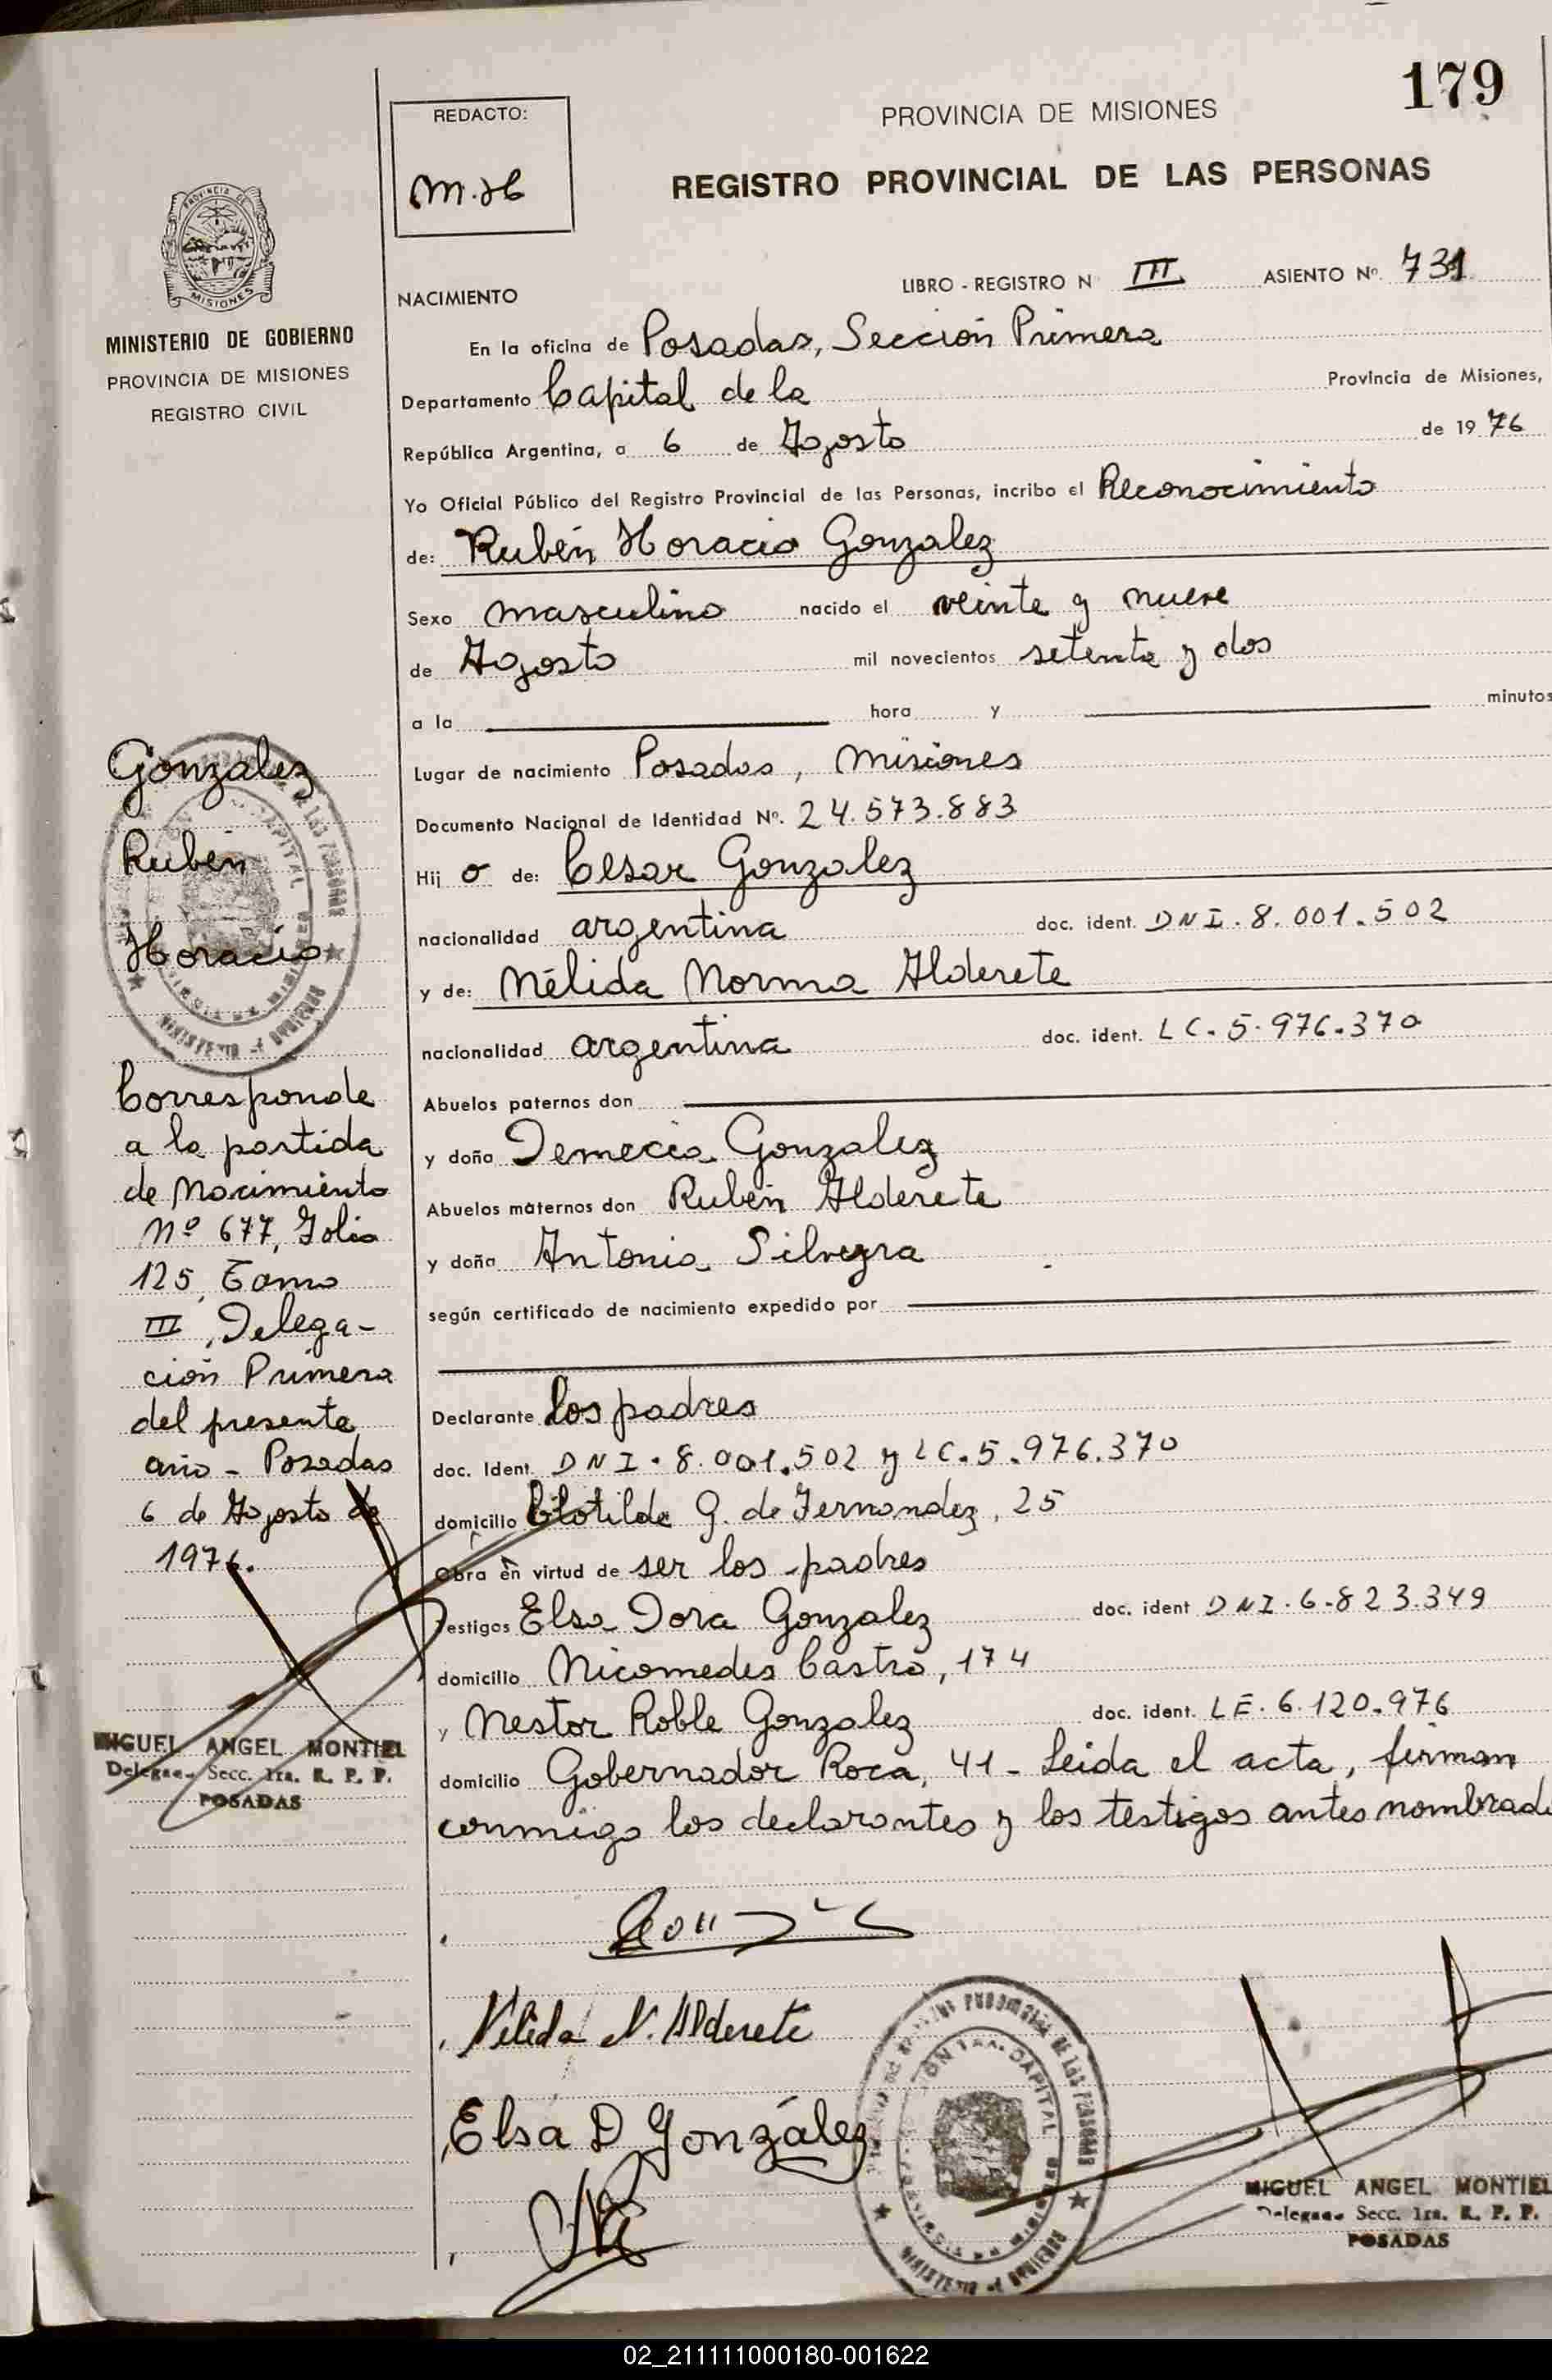 179
REDACTO:
M.H
PROVINCIA DE MISIONES
REGISTRO PROVINCIAL DE LAS PERSONAS
LIBRO - REGISTRO N III ASIENTO Nº. 731
NACIMIENTO
En la oficina de Posadas, Sección Primera
Departamento Capital de la Provincia de Misiones,
República Argentina, a 6 de Agosto de 19 76
Yo Oficial Público del Registro Provincial de las Personas, incribo el Reconocimiento
de: Rubén Horacio Gonzalez
Sexo masculino nacido el veinte y nueve
de Agosto mil novecientos setenta y dos
a la hora y minutos
Lugar de nacimiento Posadas, Misiones
Documento Nacional de Identidad Nº. 24.573.883
Hij o de: Cesar Gonzalez
nacionalidad argentina doc. ident. DNI. 8.001.502
y de: Nélida Norma Alderete
nacionalidad argentina doc. ident. LC. 5.976.370
Abuelos paternos don
y doña Demecia Gonzalez
Abuelos maternos don Rubén Alderete
y doña Antonia Silveyra
según certificado de nacimiento expedido por
Declarante los padres
doc. Ident. DNI. 8.001.502 y LC. 5.976.370
domicilio Clotilde G. de Fernandez, 25
Obra en virtud de ser los padres
Testigos Elsa Dora Gonzalez doc. ident DNI. 6.823.349
domicilio Nicomedes Castro, 174
y Nestor Roble Gonzalez doc. ident. LE. 6.120.976
domicilio Gobernador Roca, 41 - Leida el acta, firman
conmigo los declarantes y los testigos antes nombrad
Nélida N. Alderete
Elsa D González
MIGUEL ANGEL MONTIEL
Secc. 1ra. R. P. P.
POSADAS
PROVINCIA DE
MISIONES
MINISTERIO DE GOBIERNO
PROVINCIA DE MISIONES
REGISTRO CIVIL
Gonzalez
Rubén
Horacio
Corresponde
a la partida
de Nacimiento
Nº 677, Folio
125, Tomo
III, Delega-
ción Primera
del presente
año - Posadas
6 de Agosto de
1976.
MIGUEL ANGEL MONTIEL
Secc. 1ra. R. P. P.
POSADAS
02_211111000180-001622